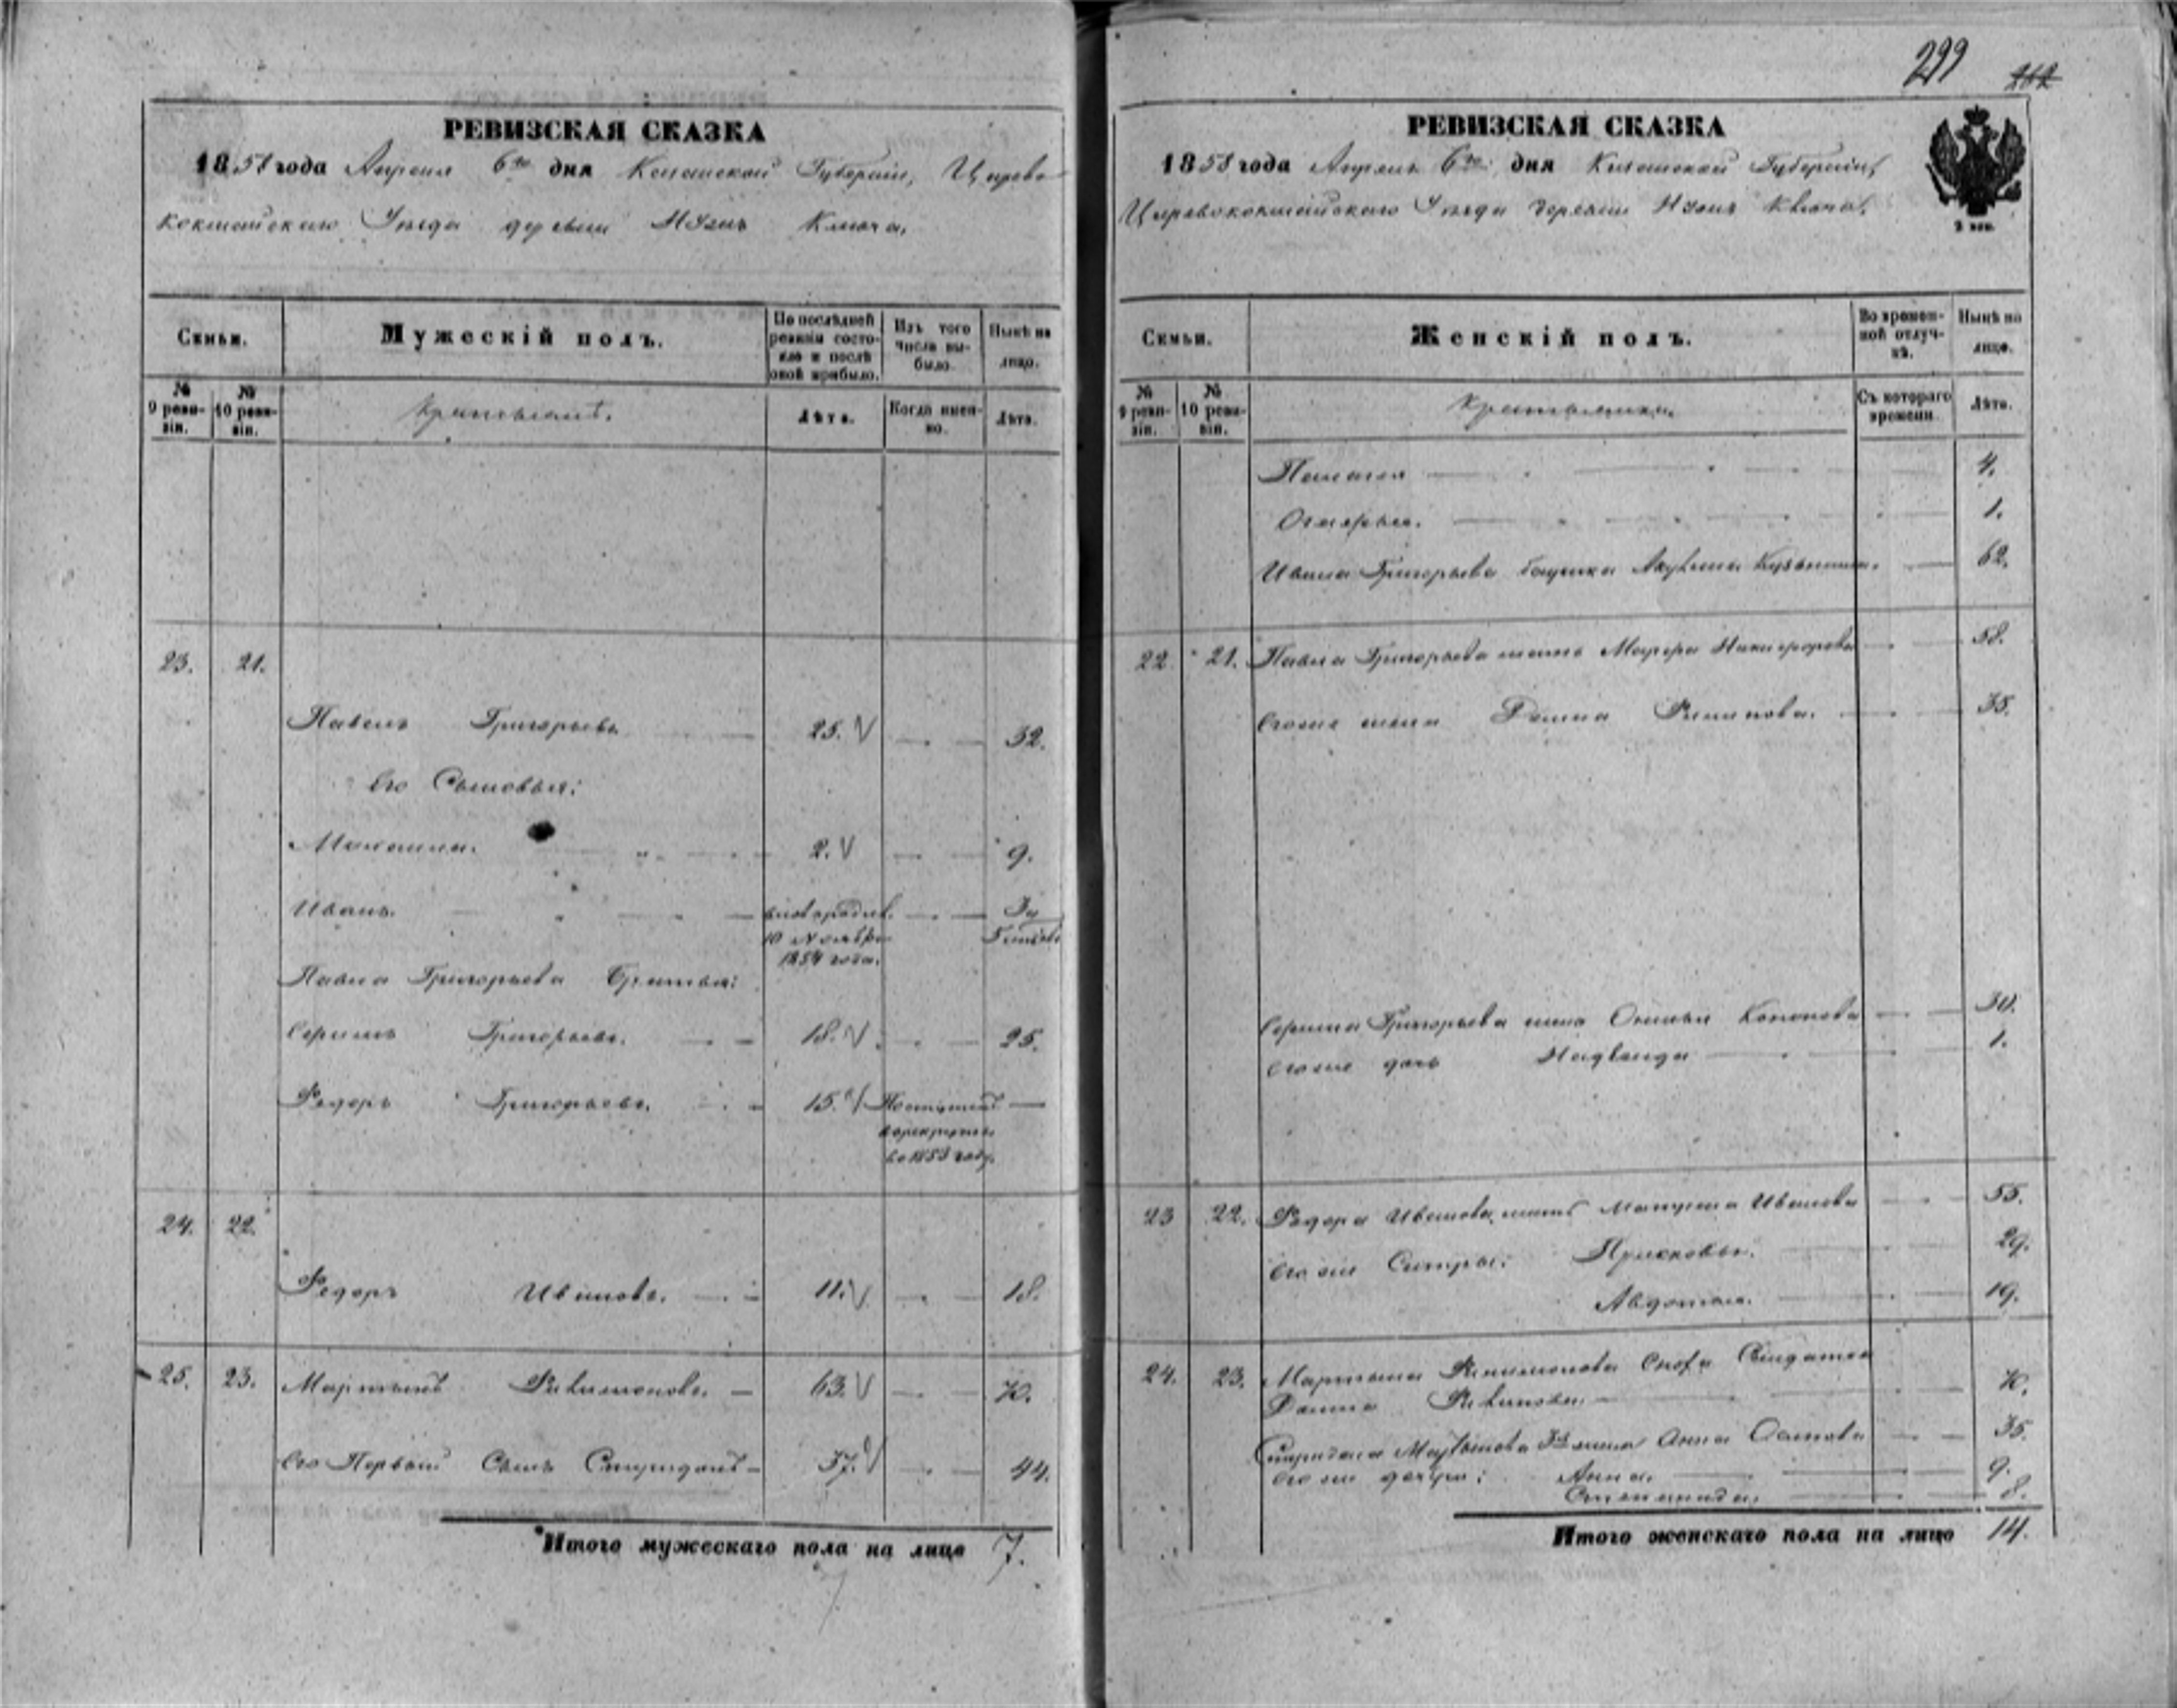 299
262
РЕВИЗСКАЯ СКАЗКА
1858 года Апреля 6го дня Казанской Губернiи, Царево-
кокшайскаго Уѣзда деревни Ключа.
Семьи.
Мужескiй полъ.
По послѣдней ревизiи состояло и послѣ оной прибыло.
Изъ того числа выбыло.
Нынѣ на лицо.
№ 9 ревизiи.
№ 10 ревизiи.
Крестьянѣ.
Лѣта.
Когда именно.
Лѣта.
23. 21.
Павелъ Григорьевъ 25. 32.
Его Сыновья:
2. 9.
Иванъ. новорожд. 3 и
10 Ноября 5 мѣсяц.
1854 года.
Павла Григорьева Братья:
Григорьевъ. 18. 25.
Федоръ Григорьевъ. 15. Поступилъ
в рекруты
в 1853 году.
24. 22.
Федоръ Ивановъ. 11. 18.
25. 23. Мартынъ Филимоновъ. 63. 70.
Его Первый Сынъ Спиридонъ 37. 44.
Итого мужескаго пола на лицо 7.
РЕВИЗСКАЯ СКАЗКА
1858 года Апреля 6го дня Казанской Губернiи,
Царевококшайскаго Уѣзда деревни Ключа.
2 коп.
Семьи.
Женскiй полъ.
Во временной отлучкѣ.
Нынѣ на лицо.
№ 9 ревизiи.
№ 10 ревизiи.
Крестьянки.
Съ котораго времени.
Лѣта.
Палагея 4.
1.
Ивана Григорьева Акулина Кузьмина. 62.
22. 21. Павла Григорьева мать Марфа Никифорова 58.
Его же жена 35.
Григорьева жена Кононова 30.
Его же дочь 1.
23 22. Федора Иванова мать Иванова 55.
Его же Сестры: Прасковья. 29.
Авдотья. 19.
24. 23. Мартына Филимонова Сноха Солдатка
70.
Спиридона Мартынова жена Анна 35.
Его же дочери: Анна. 9.
Степанида. 8.
Итого женскаго пола на лицо 14.